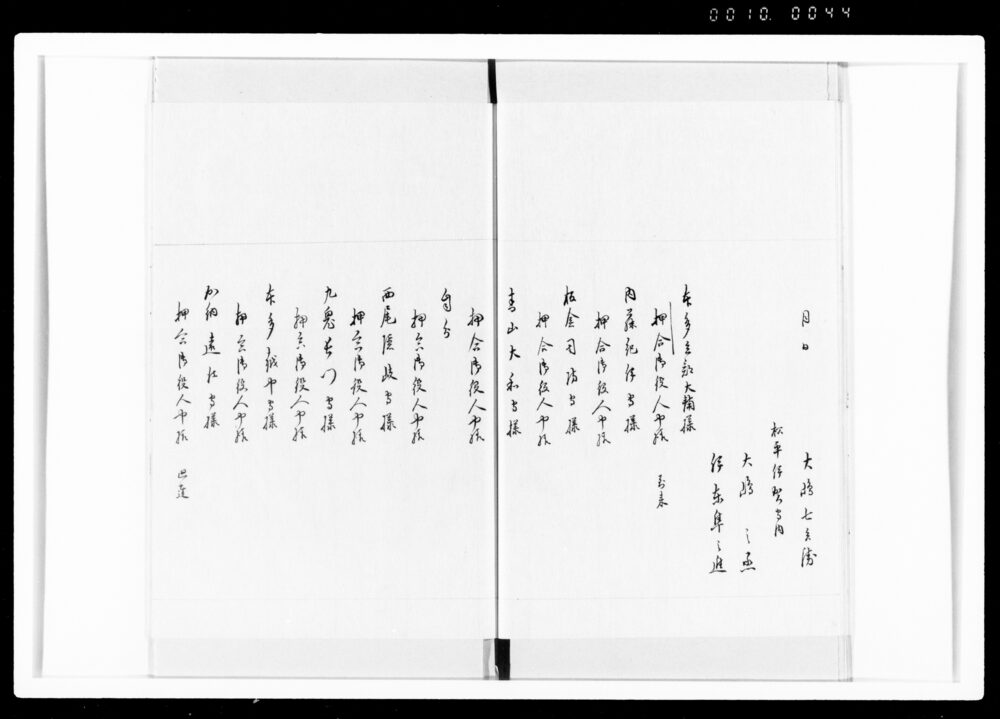 0010. 0044
月日
大嶋七兵衛
松平伊賀守内
大嶋
伊東隼之進
本多兵部大輔様
押合御役人中様
内藤紀伊守様
押合御役人中様
板倉周防守様
押合御役人中様
青山大和守様
押合御役人中様
自分
西尾隠岐守様
押合御役人中様
九鬼長門守様
押合御役人中様
本多越中守様
押合御役人中様
加納遠江守様
押合御役人中様